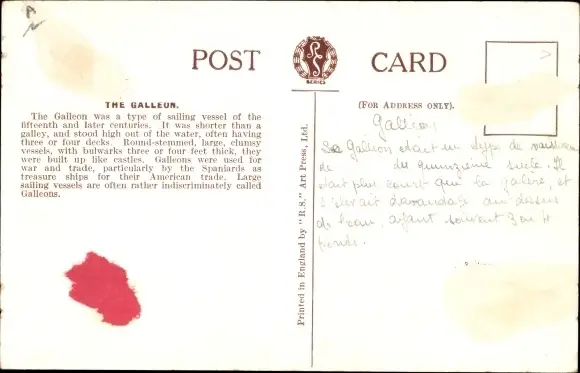 A
POST CARD
R S
SERIES
THE GALLEON.
The Galleon was a type of sailing vessel of the
fifteenth and later centuries. It was shorter than a
galley, and stood high out of the water, often having
three or four decks. Round-stemmed, large, clumsy
vessels, with bulwarks three or four feet thick, they
were built up like castles. Galleons were used for
war and trade, particularly by the Spaniards as
treasure ships for their American trade. Large
sailing vessels are often rather indiscriminately called
Galleons.
Printed in England by "R.S." Art Press, Ltd.
(FOR ADDRESS ONLY).
Galleon
Le Galleon était un type de
de des quinzième siècle. Il
était plus court que la galère, et
s'élevait davantage au dessus
de l'eau, ayant souvent 3 ou 4
ponts.